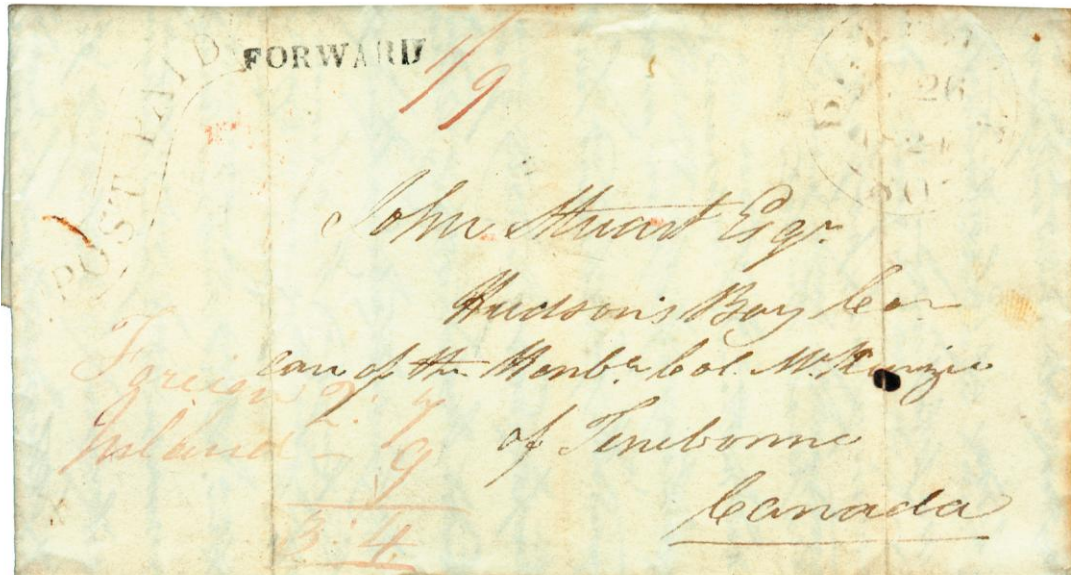 POST PAID
FORWARD
1/9
26
John Stuart Esqr.
Hudson's Bay Co.
care of the Honble. Col. McKenzie
of Terrebonne
Canada
Foreign 2. 7
Inland - 9
3. 4